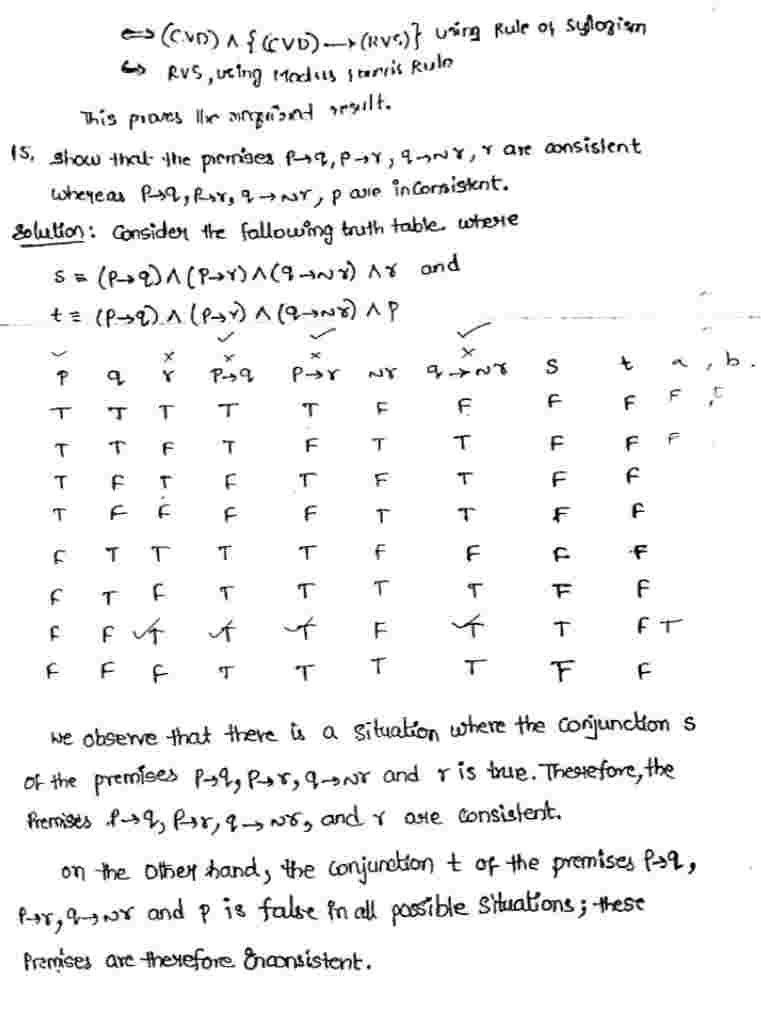 ⟺ (CVD) ∧ {(CVD) ⟶ (RVS)} using Rule of Syllogism
⟺ RVS, using Modus Rule
This proves the result.
15. Show that the premises P→q, P→r, q→Nr, r are consistent
whereas P→q, P→r, q→Nr, p are inconsistent.
Solution: Consider the following truth table. where
s ≡ (P→q) ∧ (P→r) ∧ (q→Nr) ∧ r and
t ≡ (P→q) ∧ (P→r) ∧ (q→Nr) ∧ P
✓ ✓ ✓
✓ × × × ×
P q r P→q P→r Nr q→Nr S t a, b.
T T T T T F F F F F
T T F T F T T F F F
T F T F T F T F F
T F F F F T T F F
F T T T T F F F F
F T F T T T T F F
F F ✓T ✓T ✓T F ✓T T F T
F F F T T T T F F
we observe that there is a situation where the conjunction s
of the premises P→q, P→r, q→Nr and r is true. Therefore, the
Premises P→q, P→r, q→Nr, and r are consistent.
on the other hand, the conjunction t of the premises P→q,
P→r, q→Nr and p is false in all possible situations; these
Premises are therefore Inconsistent.